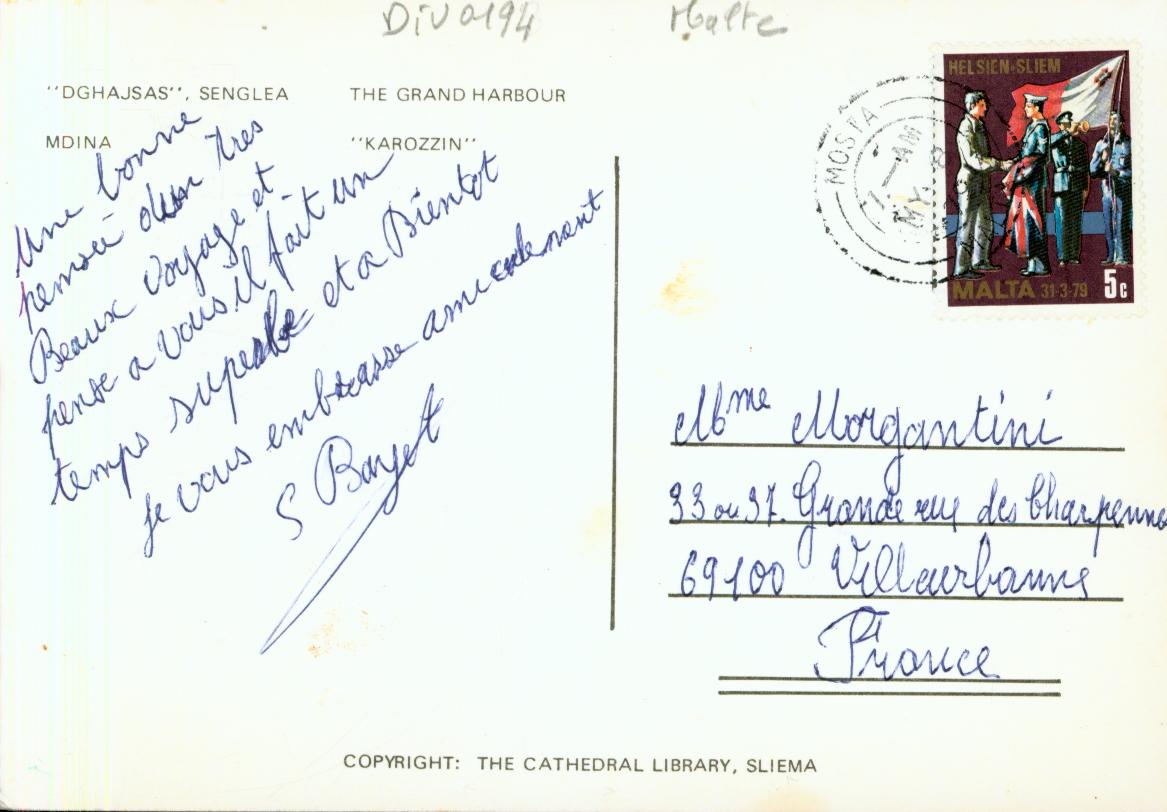 DIV0194 Malte
"DGHAJSAS", SENGLEA THE GRAND HARBOUR
MDINA "KAROZZIN"
Une bonne
pensée dun tres
Beaux voyage et
pense a vous il fait un
temps superbe et a Bientot
je vous embrasse amicalement
S Bayet
HELSIEN·SLIEM
MALTA 31·3·79 5c
MOSTA
AM
MY
Mme Morgantini
33 ou 37. Grande rue des Charpennes
69100 Villeurbanne
France
COPYRIGHT: THE CATHEDRAL LIBRARY, SLIEMA